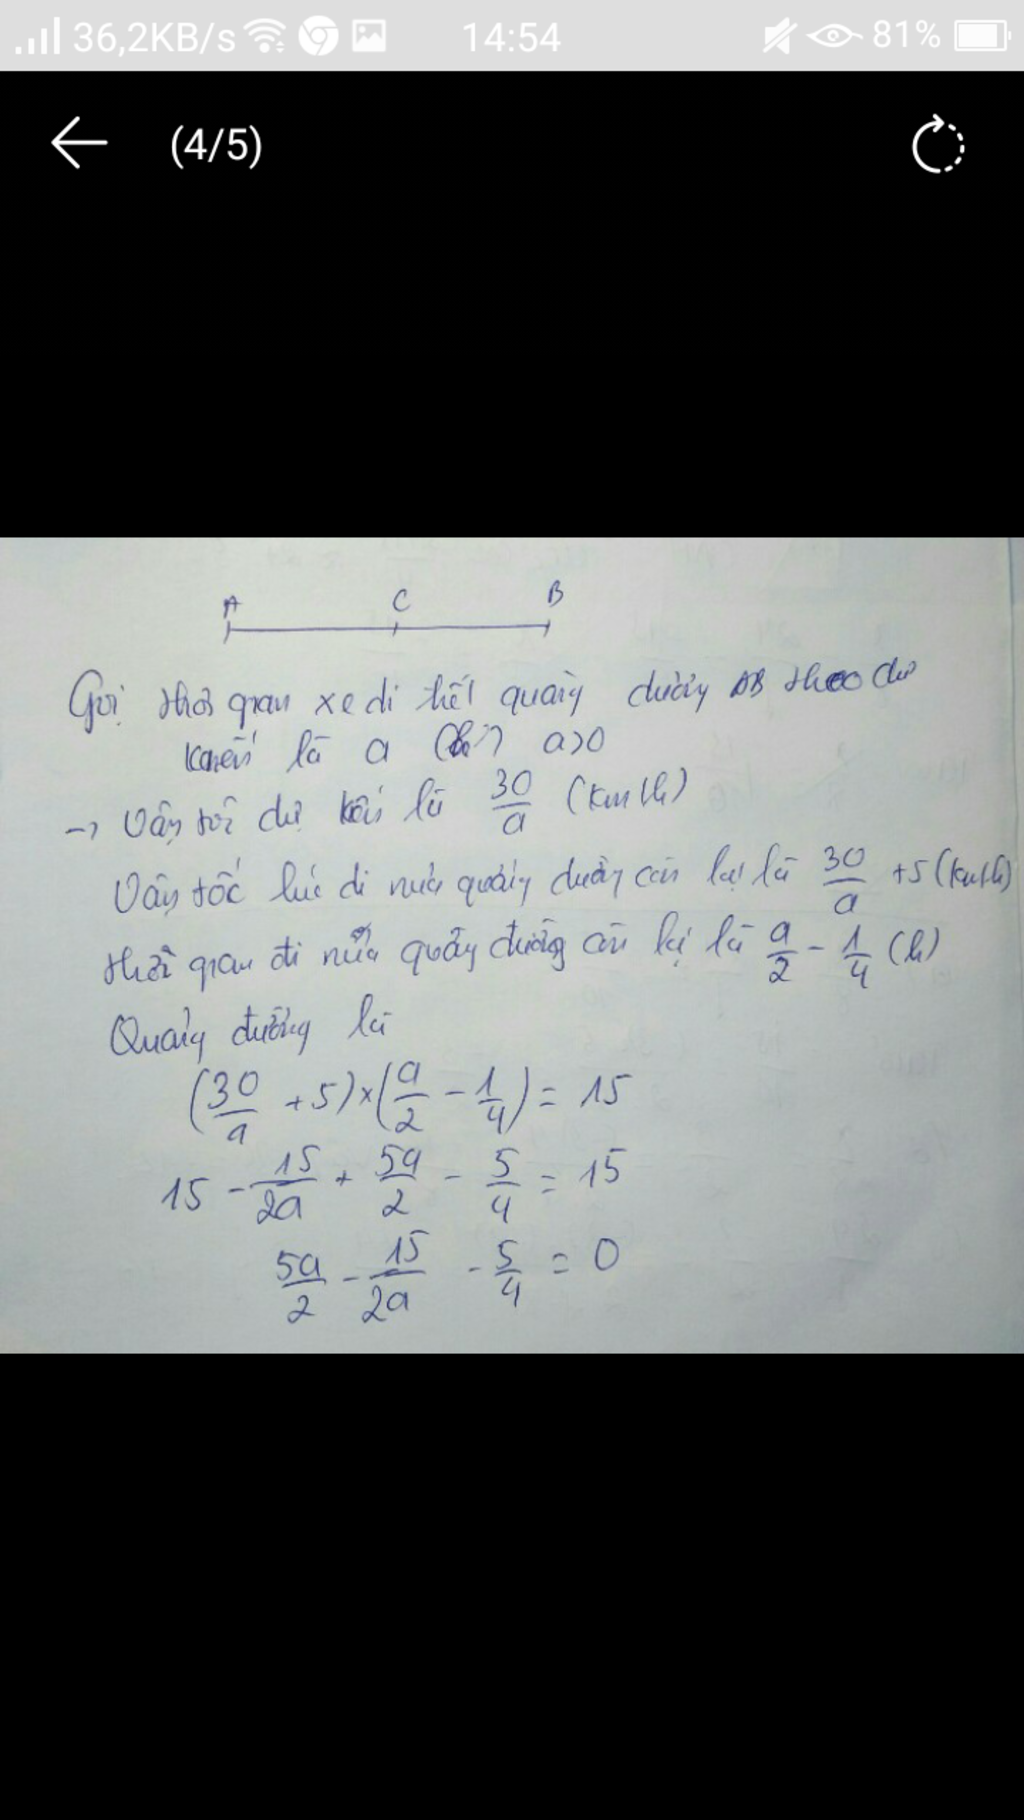 36,2KB/s 14:54 81%
(4/5)
A C B
Gọi thời gian xe đi hết quãng đường AB theo dự
kiến là a (h) a>0
→ Vận tốc dự kiến là 30/a (km/h)
Vận tốc lúc đi nửa quãng đường còn lại là 30/a +5 (km/h)
thời gian đi nửa quãng đường còn lại là a/2 - 1/4 (h)
Quãng đường là
(30/a +5)×(a/2 - 1/4) = 15
15 - 15/2a + 5a/2 - 5/4 = 15
5a/2 - 15/2a - 5/4 = 0